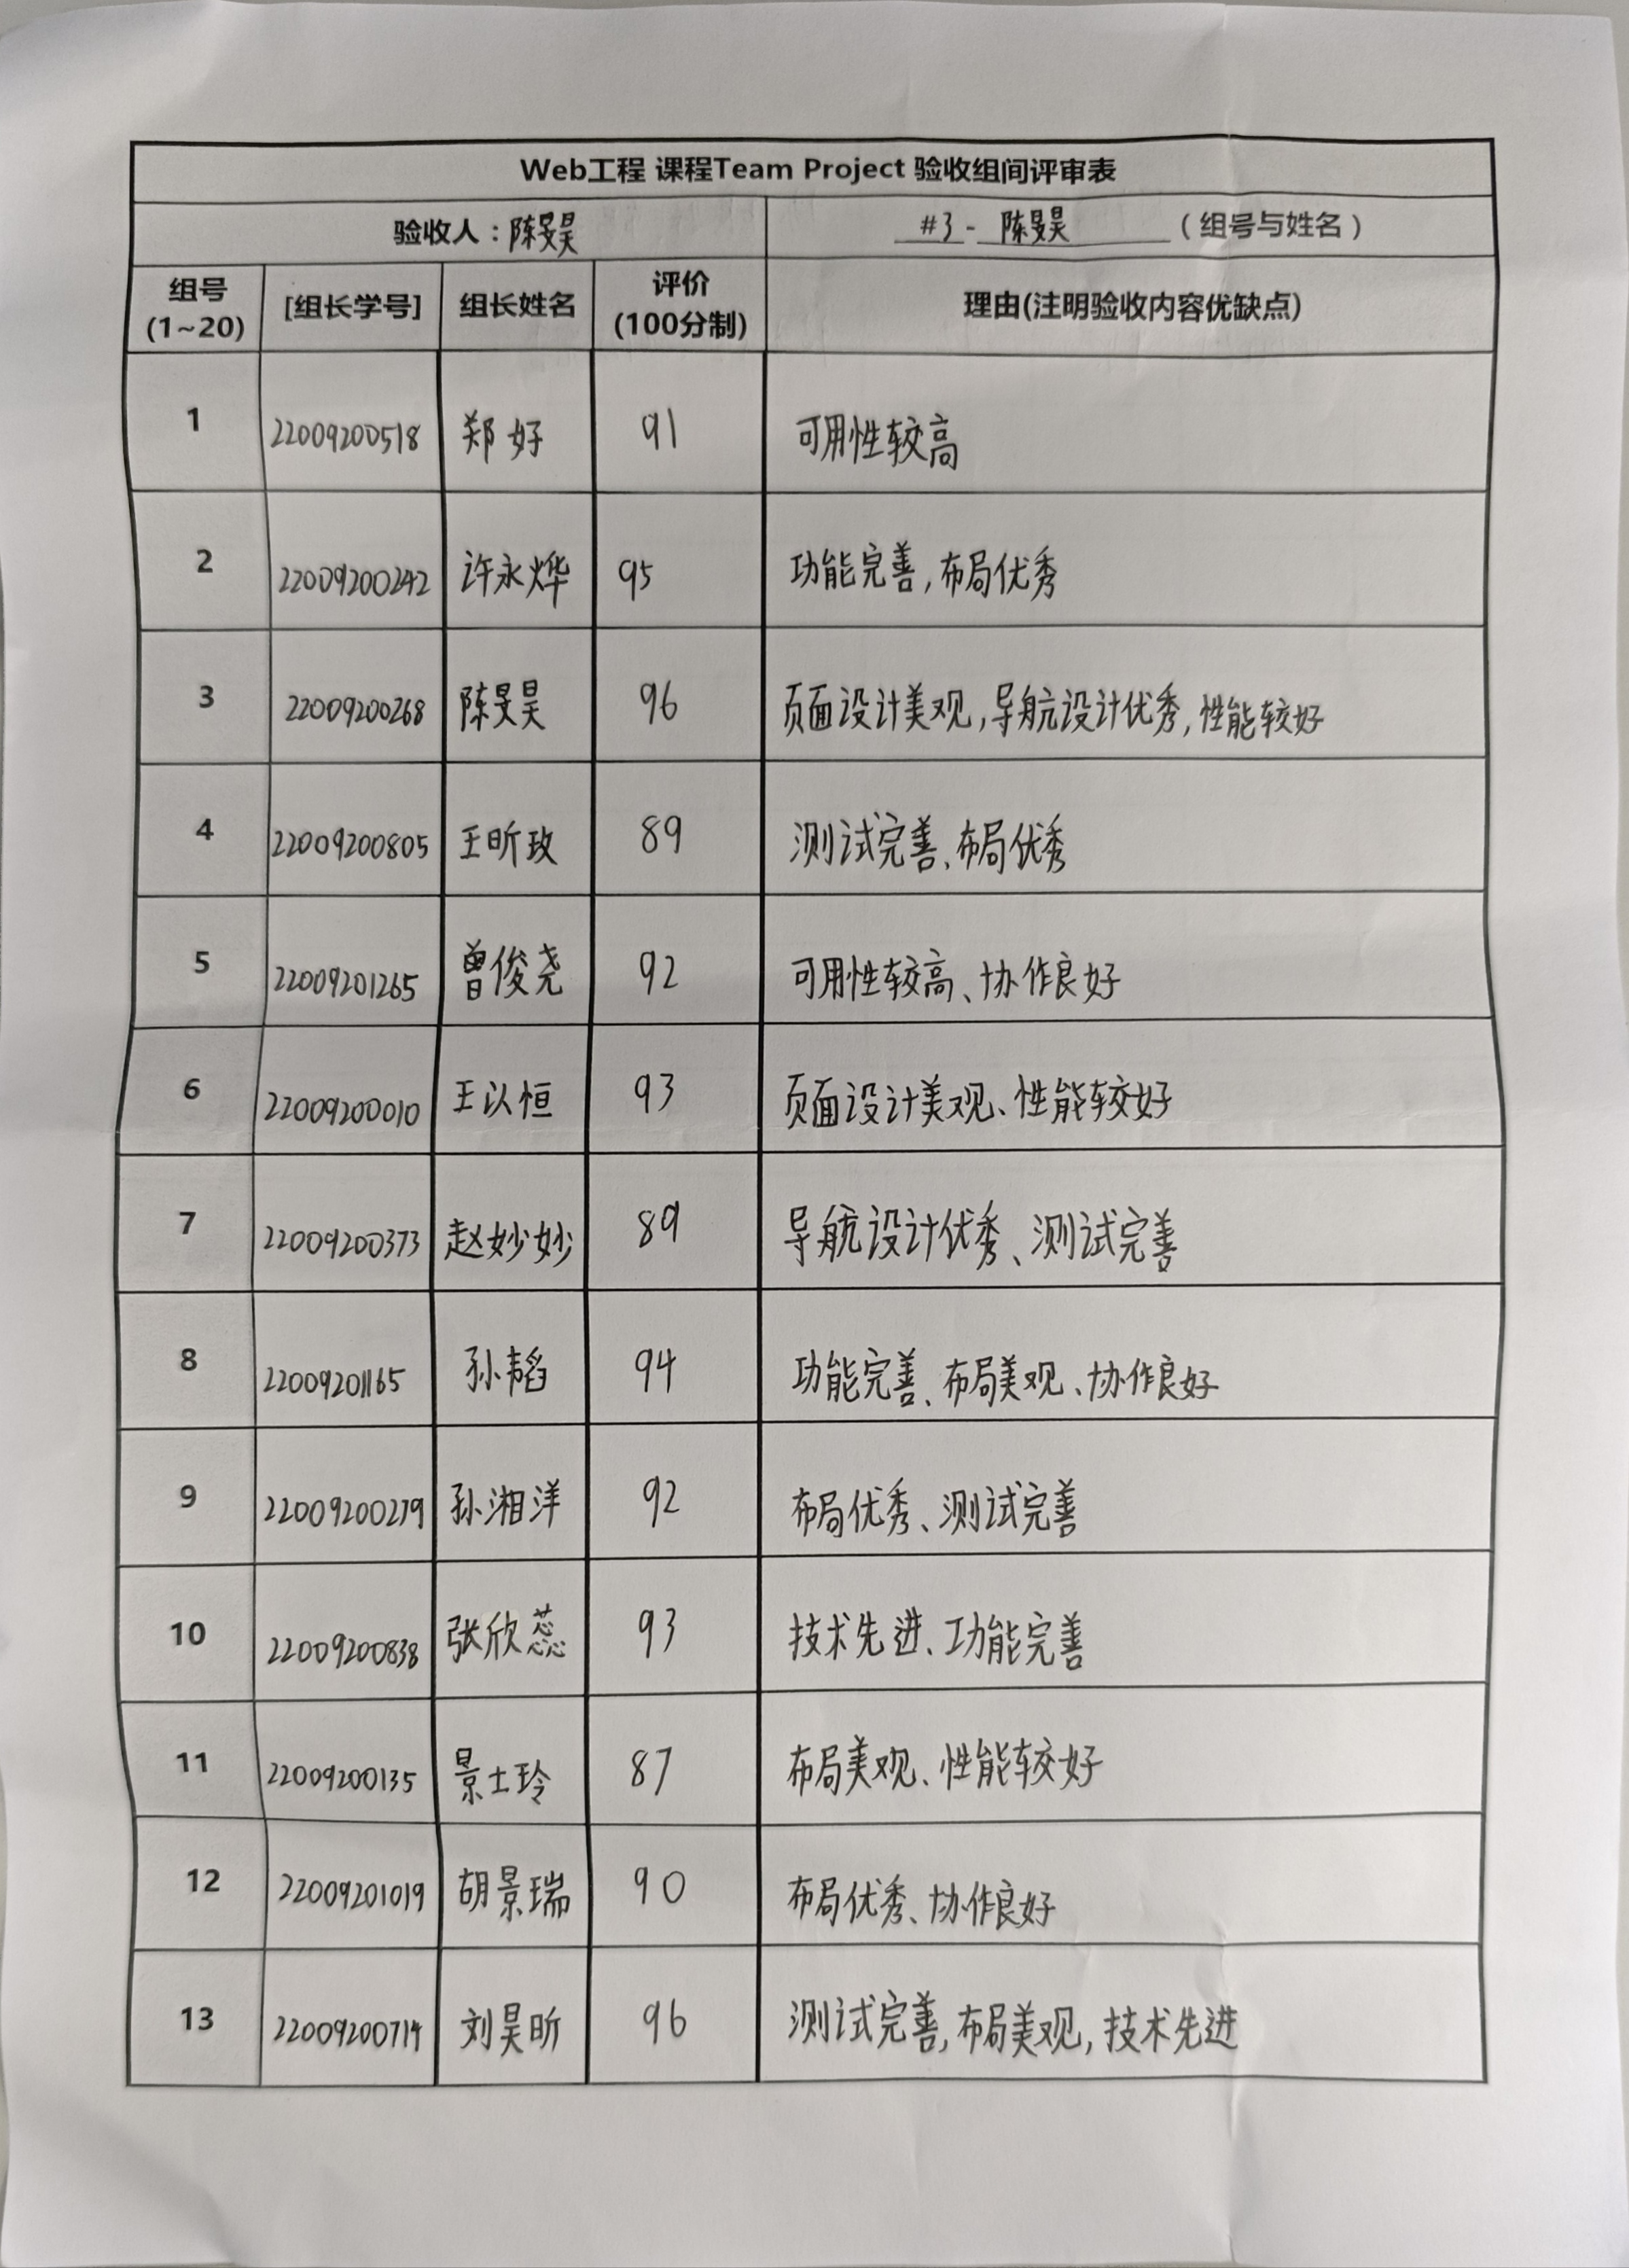 Web工程 课程Team Project 验收组间评审表
验收人：陈旻昊 #3 - 陈旻昊 （组号与姓名）
组号 (1~20) [组长学号] 组长姓名 评价 (100分制) 理由(注明验收内容优缺点)
1 22009200518 郑好 91 可用性较高
2 22009200242 许永烨 95 功能完善,布局优秀
3 22009200268 陈旻昊 96 页面设计美观,导航设计优秀,性能较好
4 22009200805 王昕玫 89 测试完善、布局优秀
5 22009201265 曾俊尧 92 可用性较高、协作良好
6 22009200010 王以恒 93 页面设计美观、性能较好
7 22009200373 赵妙妙 89 导航设计优秀、测试完善
8 22009201165 孙韬 94 功能完善、布局美观、协作良好
9 22009200279 孙湘洋 92 布局优秀、测试完善
10 22009200838 张欣蕊 93 技术先进、功能完善
11 22009200135 景士玲 87 布局美观、性能较好
12 22009201019 胡景瑞 90 布局优秀、协作良好
13 22009200714 刘昊昕 96 测试完善,布局美观,技术先进